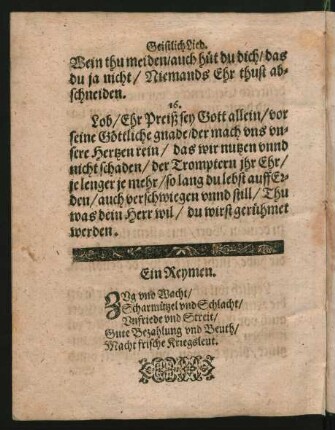 Geistlich Lied.
Wein thu melden/auch hüt du dich/das
du ja nicht/ Niemands Ehr thust ab-
schneiden.
16.
Lob/Ehr Preiß sey Gott allein/vor
seine Göttliche gnade/der mach vns vn-
sere Hertzen rein/ das wir nutzen vnnd
nicht schaden/ der Tromptern jhr Ehr/
je lenger je mehr/so lang du lebst auff Er-
den/auch verschwiegen vnnd still/ Thu
was dein Herr wil/ du wirst gerühmet
werden.
Ein Reymen.
ZVg vnd Wacht/
Scharmützel vnd Schlacht/
Vnfriede vnd Streit/
Gute Bezahlung vnd Beuth/
Macht frische Kriegsleut.